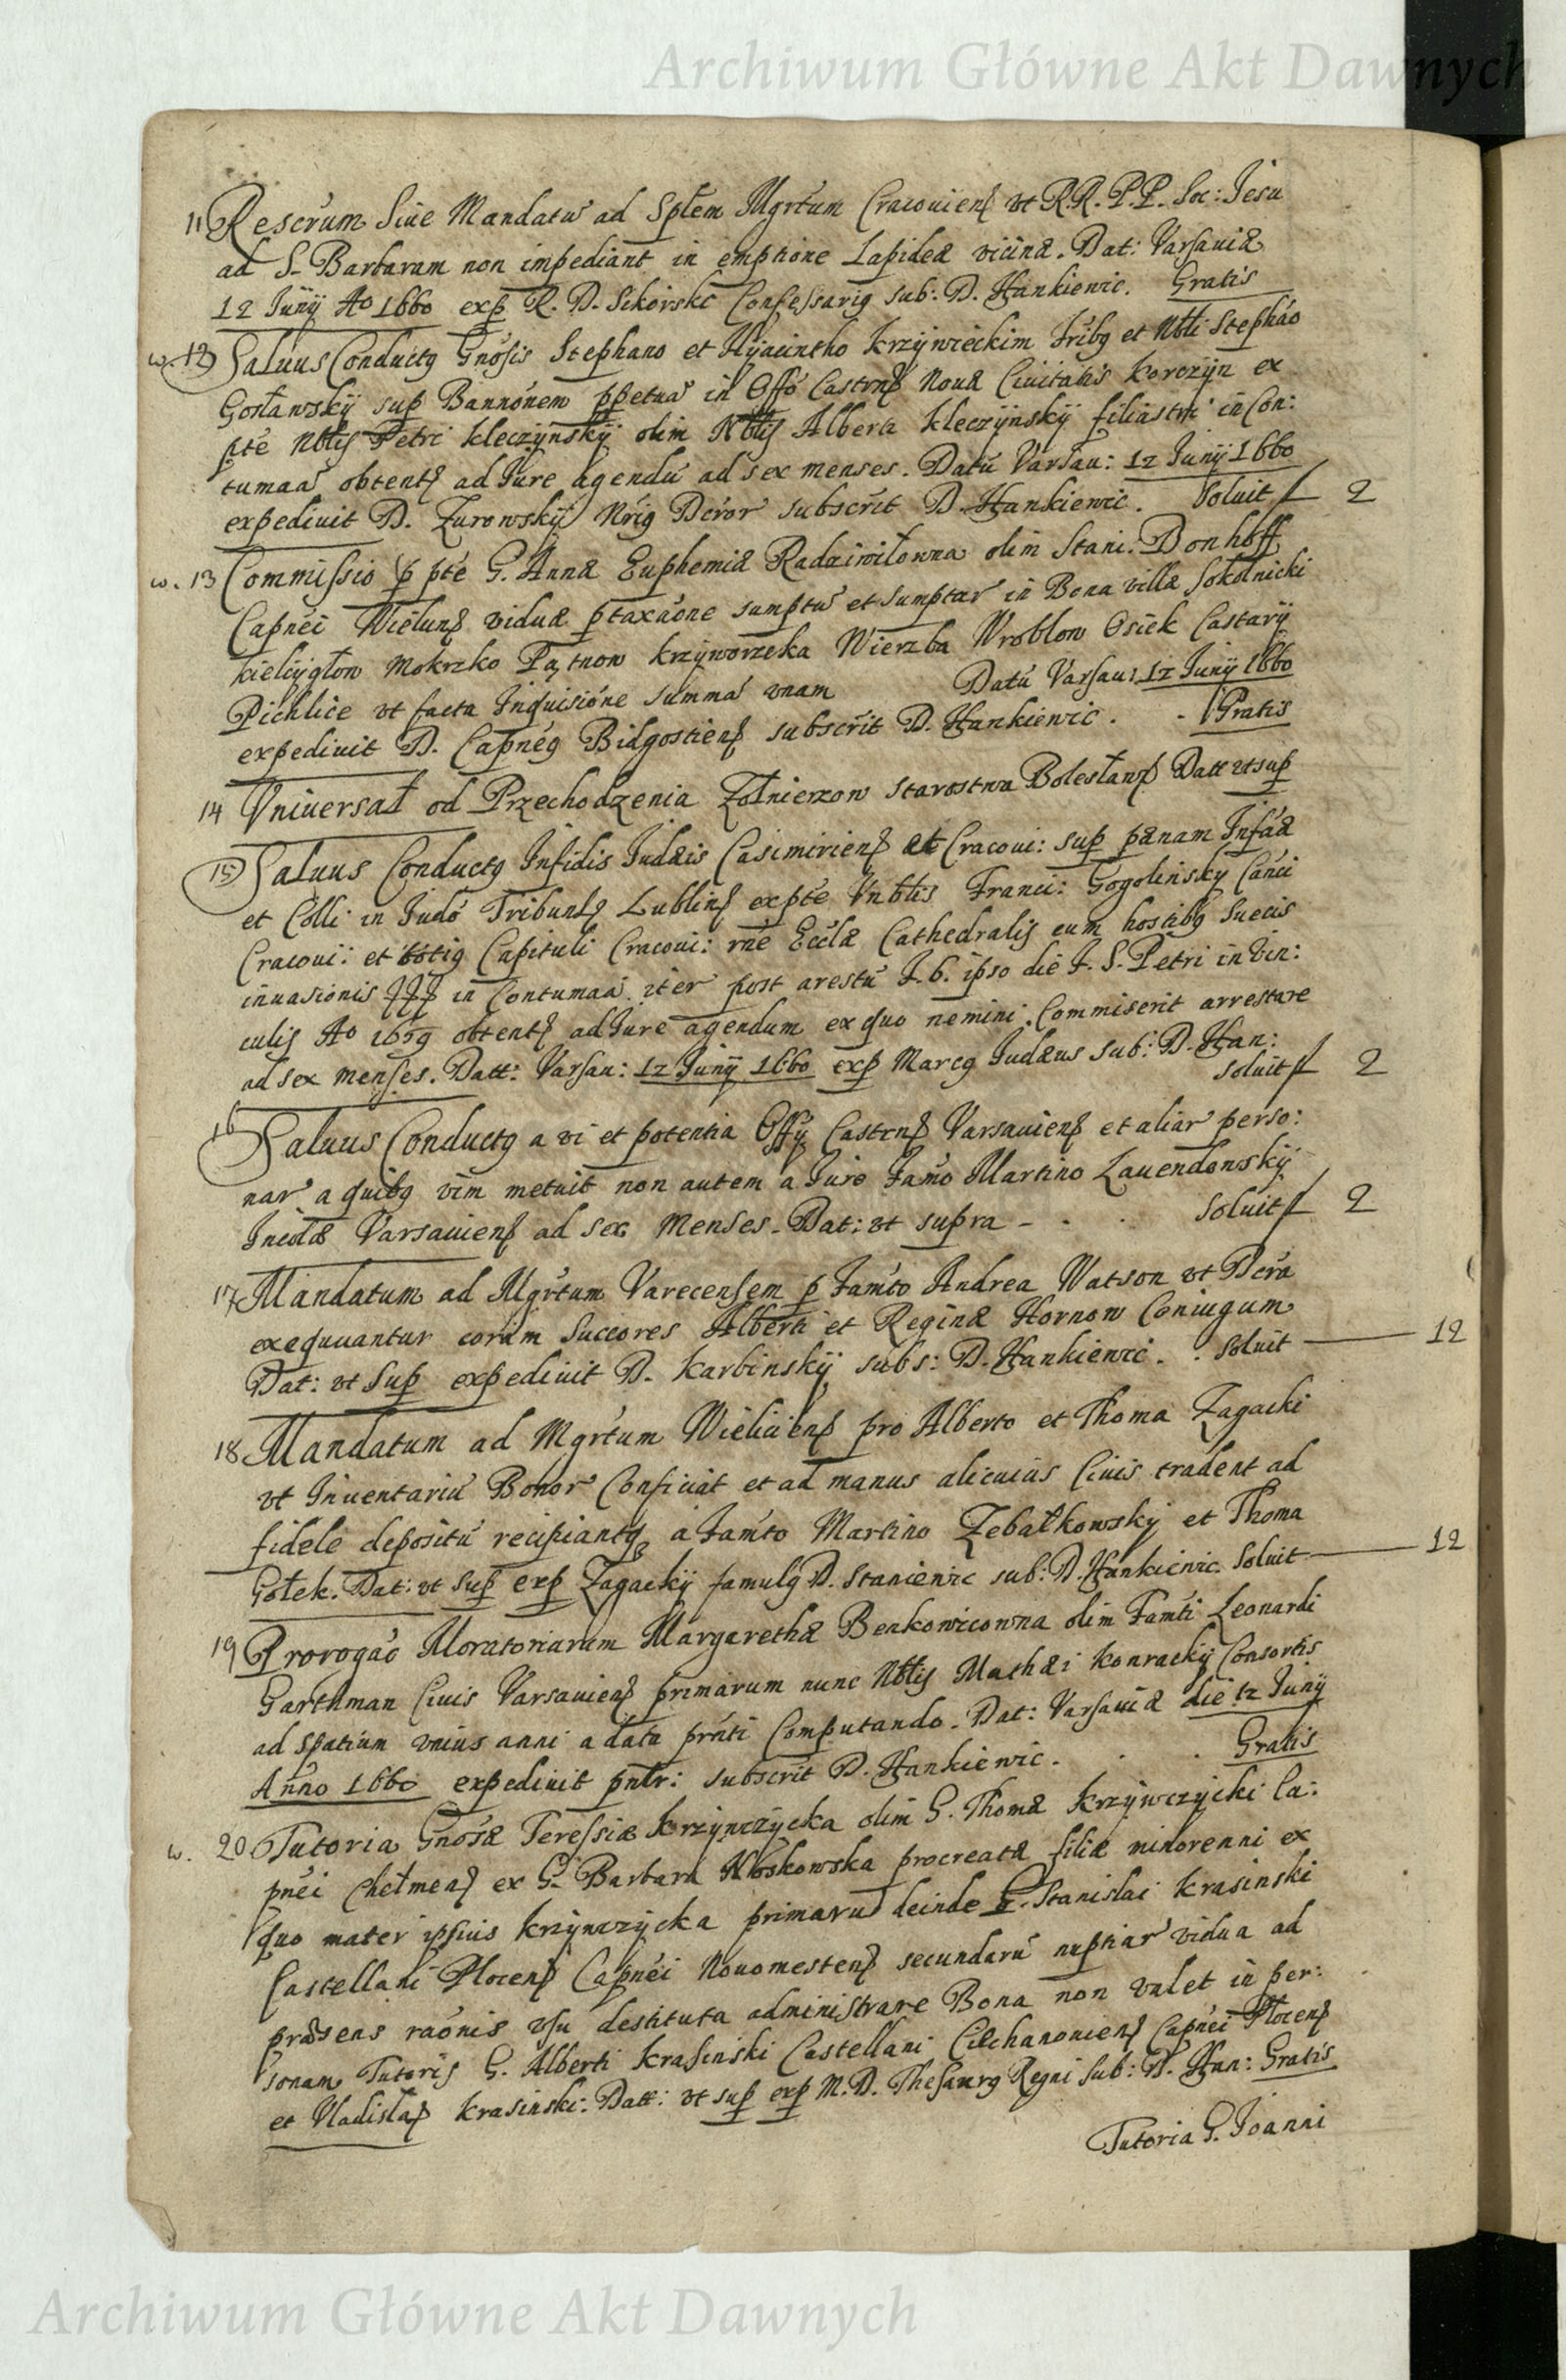 Archiwum Główne Akt Dawnych
11 Rescrum Siue Mandatū ad Sptem Mgrtum Cracouiens vt R.R.P.P. Soc: Jesu
ad S. Barbaram non impediant in emptione Lapideæ vicinæ. Dat: Varsauiæ
12 Junÿ Ao 1660 exp R. D. Sikorski Confessarig sub: D. Hankiewic. Gratis
w. 12 Saluus Conductg Gnosis Stephano et Hyacintho Krzywieckim frībg et Nbli Stepháo
Gosławskÿ sup Bannónem ppetuā in Offō Castrns Nouæ Ciuitatis Korczÿn ex
pte Nblis Petri Kleczÿnskÿ olim Nblis Alberti Kleczÿnskÿ filiastri in Con:
tumaā obtents ad Jure agendū ad sex menses. Datū Varsau: 12 Junÿ 1660
expediuit D. Zurowskÿ Nrig Dcror subscrit D. Hankiewic. Soluit f 2
w. 13 Commissio p pte G. Annæ Euphemiæ Radziwiłowna olim Stani: Donhoff
Capnei Wieluns viduæ ptaxáone sumptū et sumptar in Bona villæ Sokolnicki
Kiełcÿgłow Mokrzko Pątnow Krzÿworzeka Wierzba Wroblow Osiek Castarÿ
Pichlice vt facta Inquisióne summā vnam Datū Varsau: 12 Junÿ 1660
expediuit D. Capneg Bidgostiens subscrit D. Hankiewic. . Gratis
14 Vniuersał od Przechodzenia Zołnierzow Starostwa Bolesławs Datt vt sup
15 Saluus Conductg Infidis Judæis Casimiriens et Cracoui: sup pænam Infáæ
et Colli in Judó Tribunls Lublins ex pte Vnblis Franci: Gogolinskÿ Cánci
Cracoui: et totig Capituli Cracoui: rne Eccłæ Cathedralis cum hostibg Suecis
inuasionis in Contumaā iter post arestū F. 6. ipso die F. S. Petri in Vin:
culis Ao 1659 obtents ad Jure agendum ex quo nemini Commiserit arrestare
ad sex menses. Datt: Varsau: 12 Junÿ 1660 exp Marcg Judæus sub: D. Han:
soluit f 2
16 Saluus Conductg a vi et potentia Offÿ Castrns Varsauiens et aliar perso:
nar a quibg vim metuit non autem a Jure Famo Martino Lauendowskÿ
Incolæ Varsauiens ad sex Menses. Dat: vt supra - . . Soluit f 2
17 Mandatum ad Mgrtum Varecensem p Famto Andrea Watson vt Dcra
exequuantur coram Succores Alberti et Reginæ Hornow Coniugum
Dat: vt Sup expediuit D. Karbinskÿ subs: D. Hankiewic. . Soluit 12
18 Mandatum ad Mgrtum Wieliciens pro Alberto et Thoma Zagacki
vt Inuentariū Bonor Conficiāt et ad manus alicuius Ciuis tradent ad
fidele depositū recipiantg a Famto Martino Zebałkowskÿ et Thoma
Gołek. Dat: vt Sup exp Zagackÿ famulg D. Staniewic sub: D. Hankiewic. Soluit 12
19 Prorogáo Moratoriaram Margarethæ Benkowicowna olim Famti Leonardi
Garthman Ciuis Varsauiens primarum nunc Nblis Mathæi Konrackÿ Consortis
ad Spatium vnius anni a data prnti Computando. Dat: Varsauiæ die 12 Junÿ
Anno 1660 expediuit pntr: subscrit D. Hankiewic. . . Gratis
w. 20 Tutoria Gnosæ Teressiæ Krzÿwczÿcka olim G. Thomæ Krzÿwczÿcki Ca:
pnei Chełmens ex G. Barbara Noskowska procreatæ filiæ minorenni ex
quo mater ipsius Krzÿwczÿcka primarū deinde G. Stanislai Krasinski
Castellani Plocens Capnei Nouomestens secundarū nuptiar vidua ad
præsens raonis vsu destituta administrare Bona non valet in per:
sonam Tutoris G. Alberti Krasinski Castellani Ciechanouiens Capnei Płocens
et Vladisłas Krasinski. Datt: vt sup exp M. D. Thesaurg Regni sub: D. Han: Gratis
Tutoria G. Joanni
Archiwum Główne Akt Dawnych